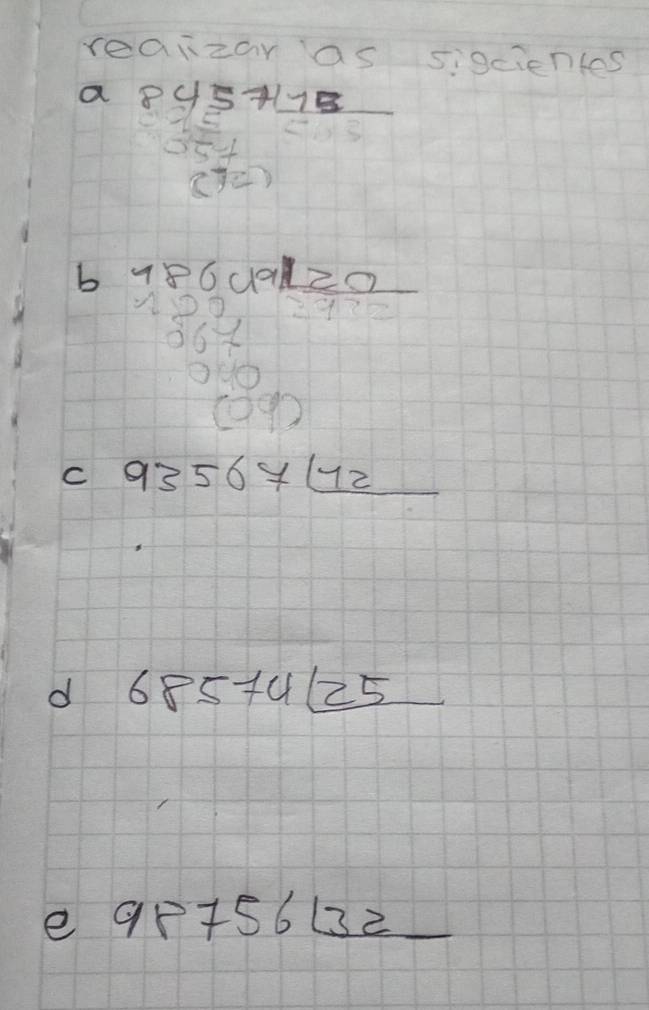 reaiizar as sigcientes
a 8457 15
057
b 18649 20
067
040
(09)
c 93567 12
d 68574 25
e 98756 32